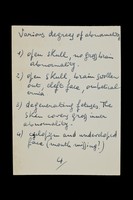 Various degrees of abnormality
1) open skull, no gross brain
abnormality.
2) open skull brain swollen
out, cleft face, umbilical
ernia
3) degenerating fetuses. The
skin covers gross inner
abnormality.
4) cyclopism and undeveloped
face (mouth missing!)